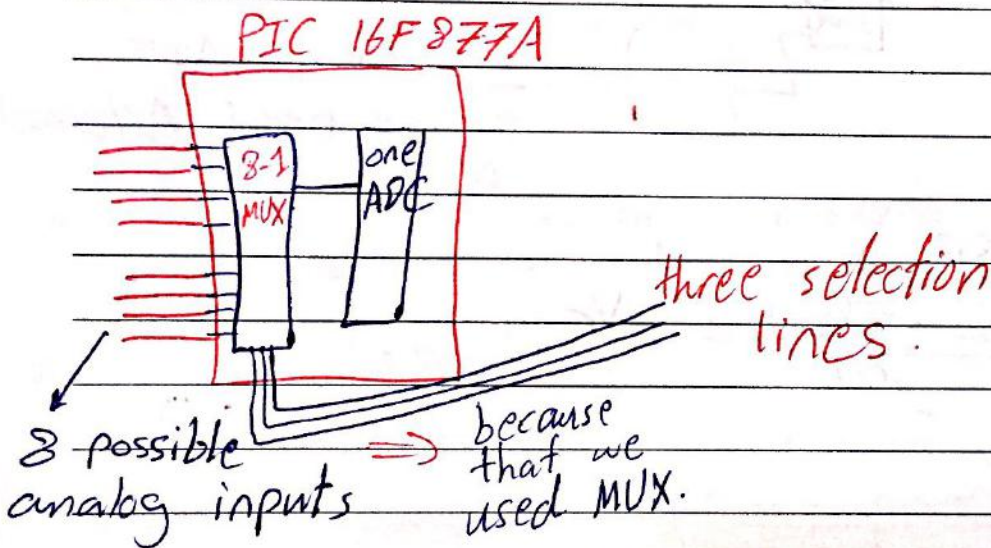 PIC 16F877A
8-1
MUX
one
ADC
three selection
lines.
8 possible
analog inputs
⇒ because
that we
used MUX.